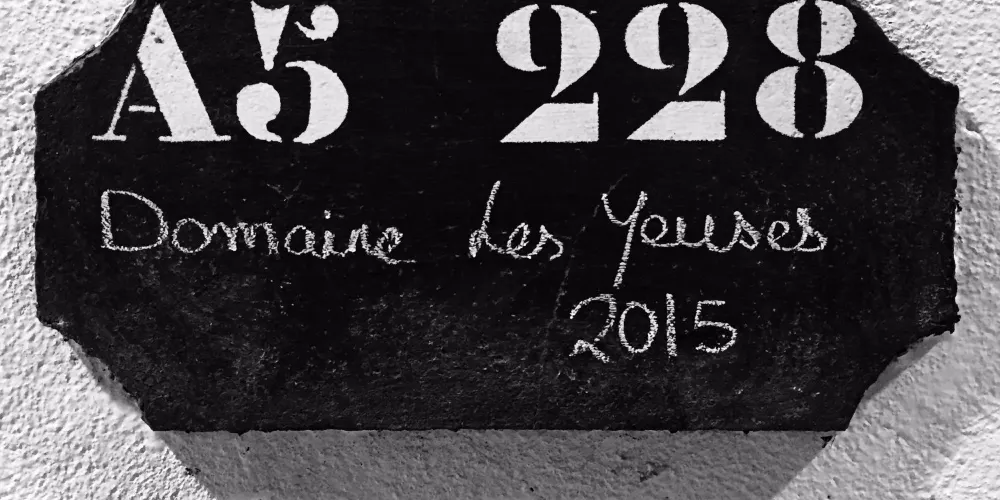 A5 228
Domaine Les Yeuses
2015